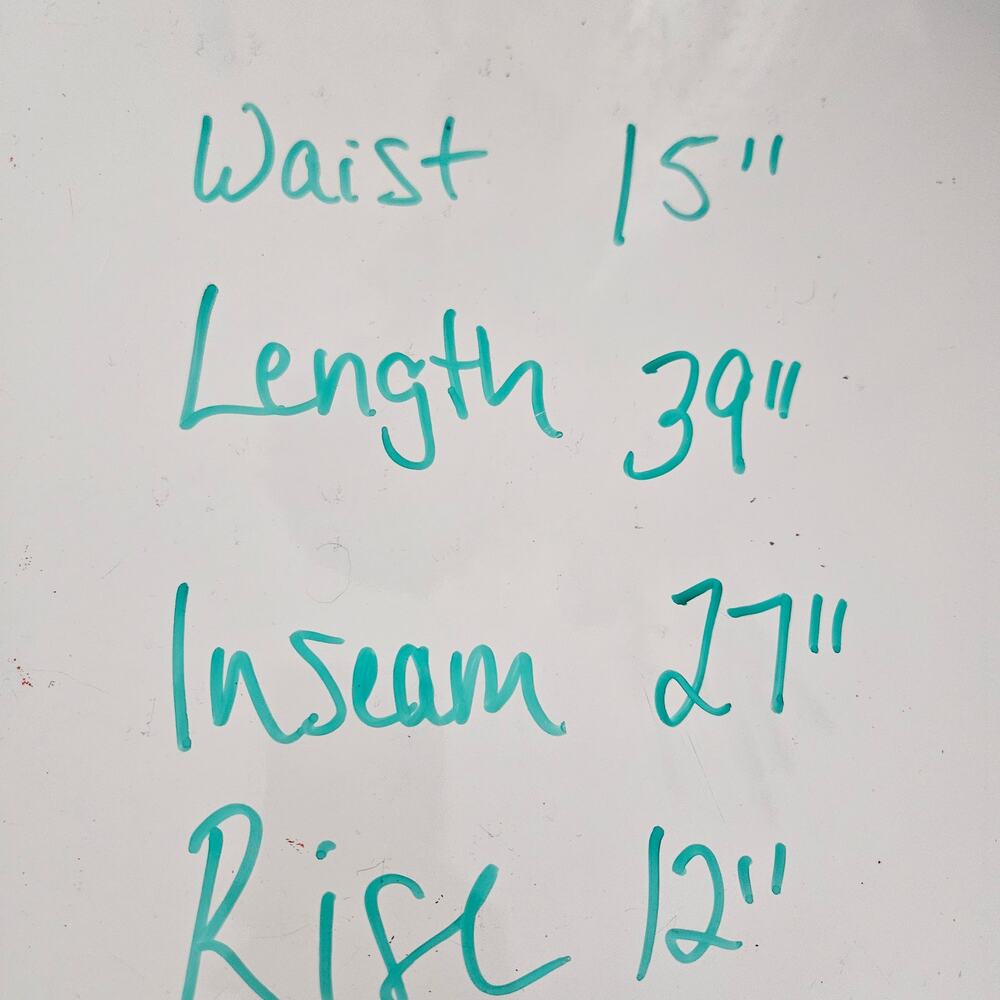 Waist 15"
Length 39"
Inseam 27"
Rise 12"